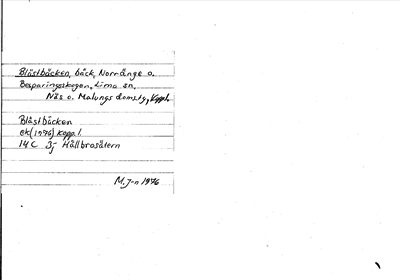 Blästbäcken, bäck, Norränge o.
Besparingsskogen, Lima sn,
Näs o. Malungs domsby, Koppl.
Blästbäcken
ek (1976) Kopp. l.
14 C 3j Hållbrosätern
M. J-n 1976